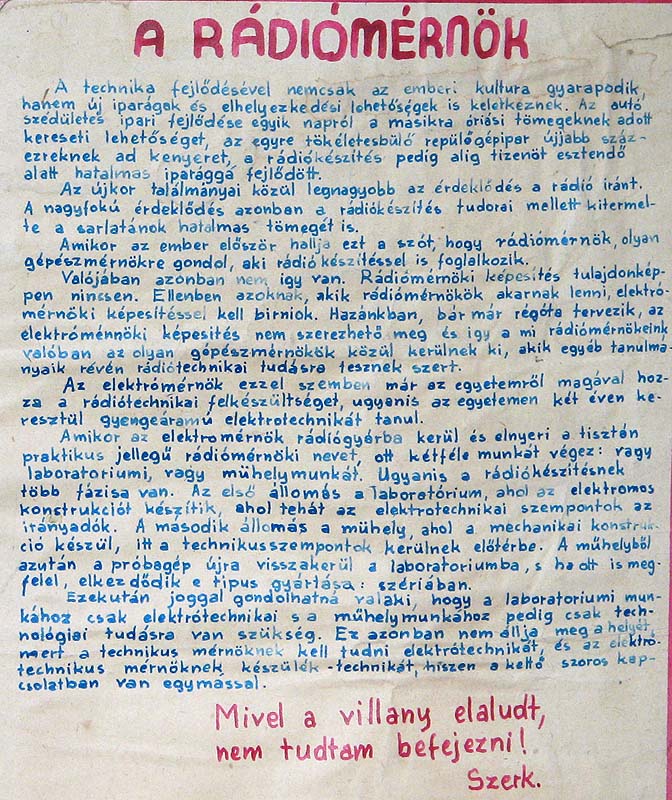 A RÁDIÓMÉRNÖK
A technika fejlődésével nemcsak az emberi kultura gyarapodik,
hanem új iparágak és elhelyezkedési lehetőségek is keletkeznek. Az autó
szédületes ipari fejlődése egyik napról a másikra óriási tömegeknek adott
kereseti lehetőséget, az egyre tökéletesbülő repülőgépipar újjabb száz-
ezreknek ad kenyeret, a rádiókészítés pedig alig tizenöt esztendő
alatt hatalmas iparággá fejlődött.
Az újkor találmányai közül legnagyobb az érdeklődés a rádió iránt.
A nagyfokú érdeklődés azonban a rádiókészítés tudorai mellett kitermel-
te a sarlatánok hatalmas tömegét is.
Amikor az ember először hallja ezt a szót, hogy rádiómérnök, olyan
gépészmérnökre gondol, aki rádió készítéssel is foglalkozik.
Valójában azonban nem így van. Rádiómérnöki képesítés tulajdonkép-
pen ninssen. Ellenben azoknak, akik rádiómérnökök akarnak lenni, elektró-
mérnöki képesítéssel kell birniok. Hazánkban, bár már régóta tervezik, az
elektróménnöki képesités nem szerezhető meg és igy a mi rádiómérnökeink
valóban az olyan gépészmérnökök közül kerülnek ki, akik egyéb tanulmá-
nyaik révén rádiótechnikai tudásra tesznek szert.
Az elektrómérnök ezzel szemben már az egyetemről magával hoz-
za a rádiótechnikai felkészültséget, ugyanis az egyetemen két éven ke-
resztül gyengeáramú elektrotechnikát tanul.
Amikor az elektromérnök rádiógyárba kerül és elnyeri a tisztán
praktikus jellegű rádiómérnöki nevet, ott kétféle munkát végez: vagy
laboratoriumi, vagy műhelymunkát. Ugyanis a rádiókészítésnek
több fázisa van. Az első állomás a laboratórium, ahol az elektromos
konstrukciót készítik, ahol tehát az elektrotechnikai szempontok az
irányadók. A második állomás a műhely, ahol a mechanikai konstruk-
ció készül, itt a technikusszempontok kerülnek előtérbe. A műhelyből
azután a próbagép újra visszakerül a laboratoriumba, s ha ott is meg-
felel, elkezdődik e tipus gyártása: szériában.
Ezekután joggal gondolhatná valaki, hogy a laboratoriumi mun-
kához csak elektrótechnikai s a műhelymunkához pedig csak tech-
nológiai tudásra van szükség. Ez azonban nem állja meg a helyét,
mert a technikus mérnöknek kell tudni elektrótechnikát, és az elektró-
technikus mérnöknek készülék-technikát, hiszen a kettő szoros kap-
csolatban van egymással.
Mivel a villany elaludt,
nem tudtam befejezni!
Szerk.